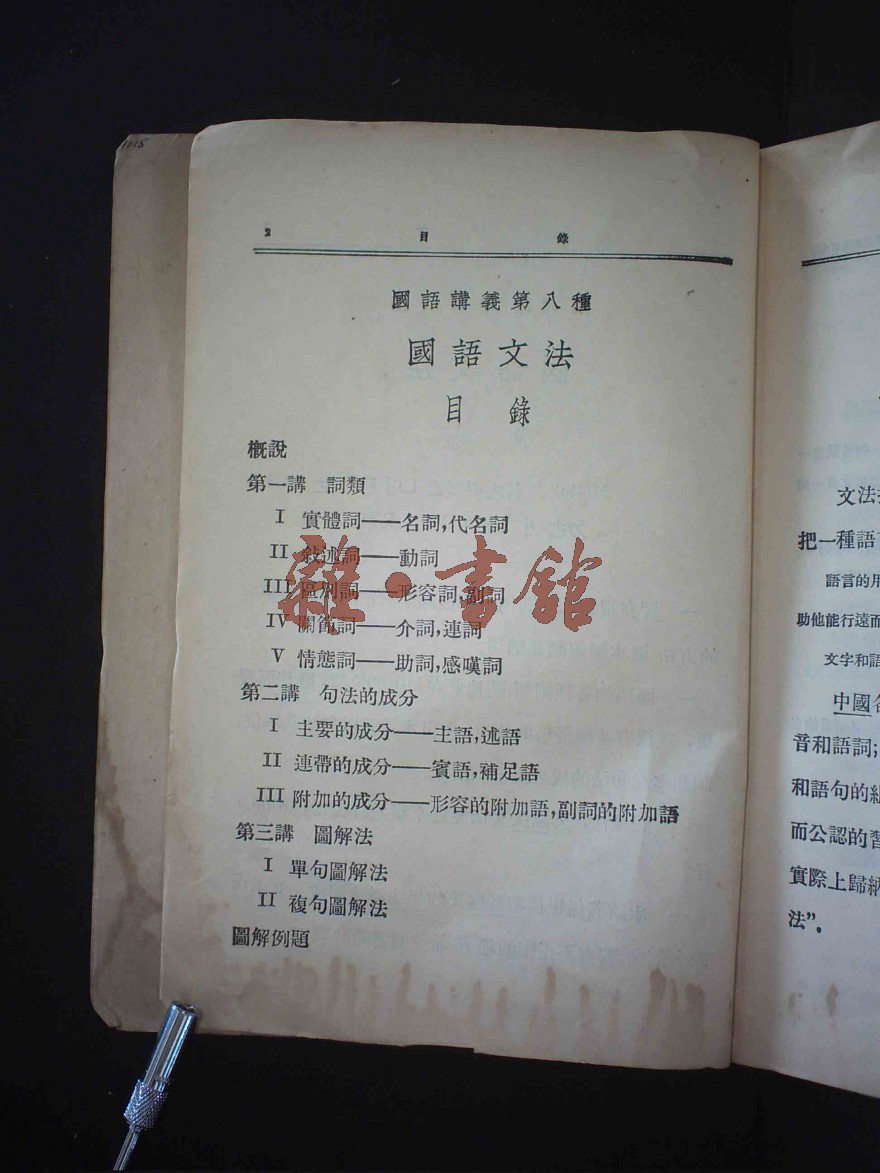 1115
2 目 錄
國語講義第八種
國語文法
目 錄
概說
第一講 詞類
I 實體詞——名詞,代名詞
II 敍述詞——動詞
III 區別詞——形容詞,副詞
IV 關節詞——介詞,連詞
V 情態詞——助詞,感嘆詞
第二講 句法的成分
I 主要的成分——主語,述語
II 連帶的成分——賓語,補足語
III 附加的成分——形容的附加語,副詞的附加語
第三講 圖解法
I 單句圖解法
II 複句圖解法
圖解例題
雜·書館
文法
把一種語
語言的用
助他能行遠而
文字和語
中國各
音和語詞;
和語句的組
而公認的習
實際上歸納
法”.